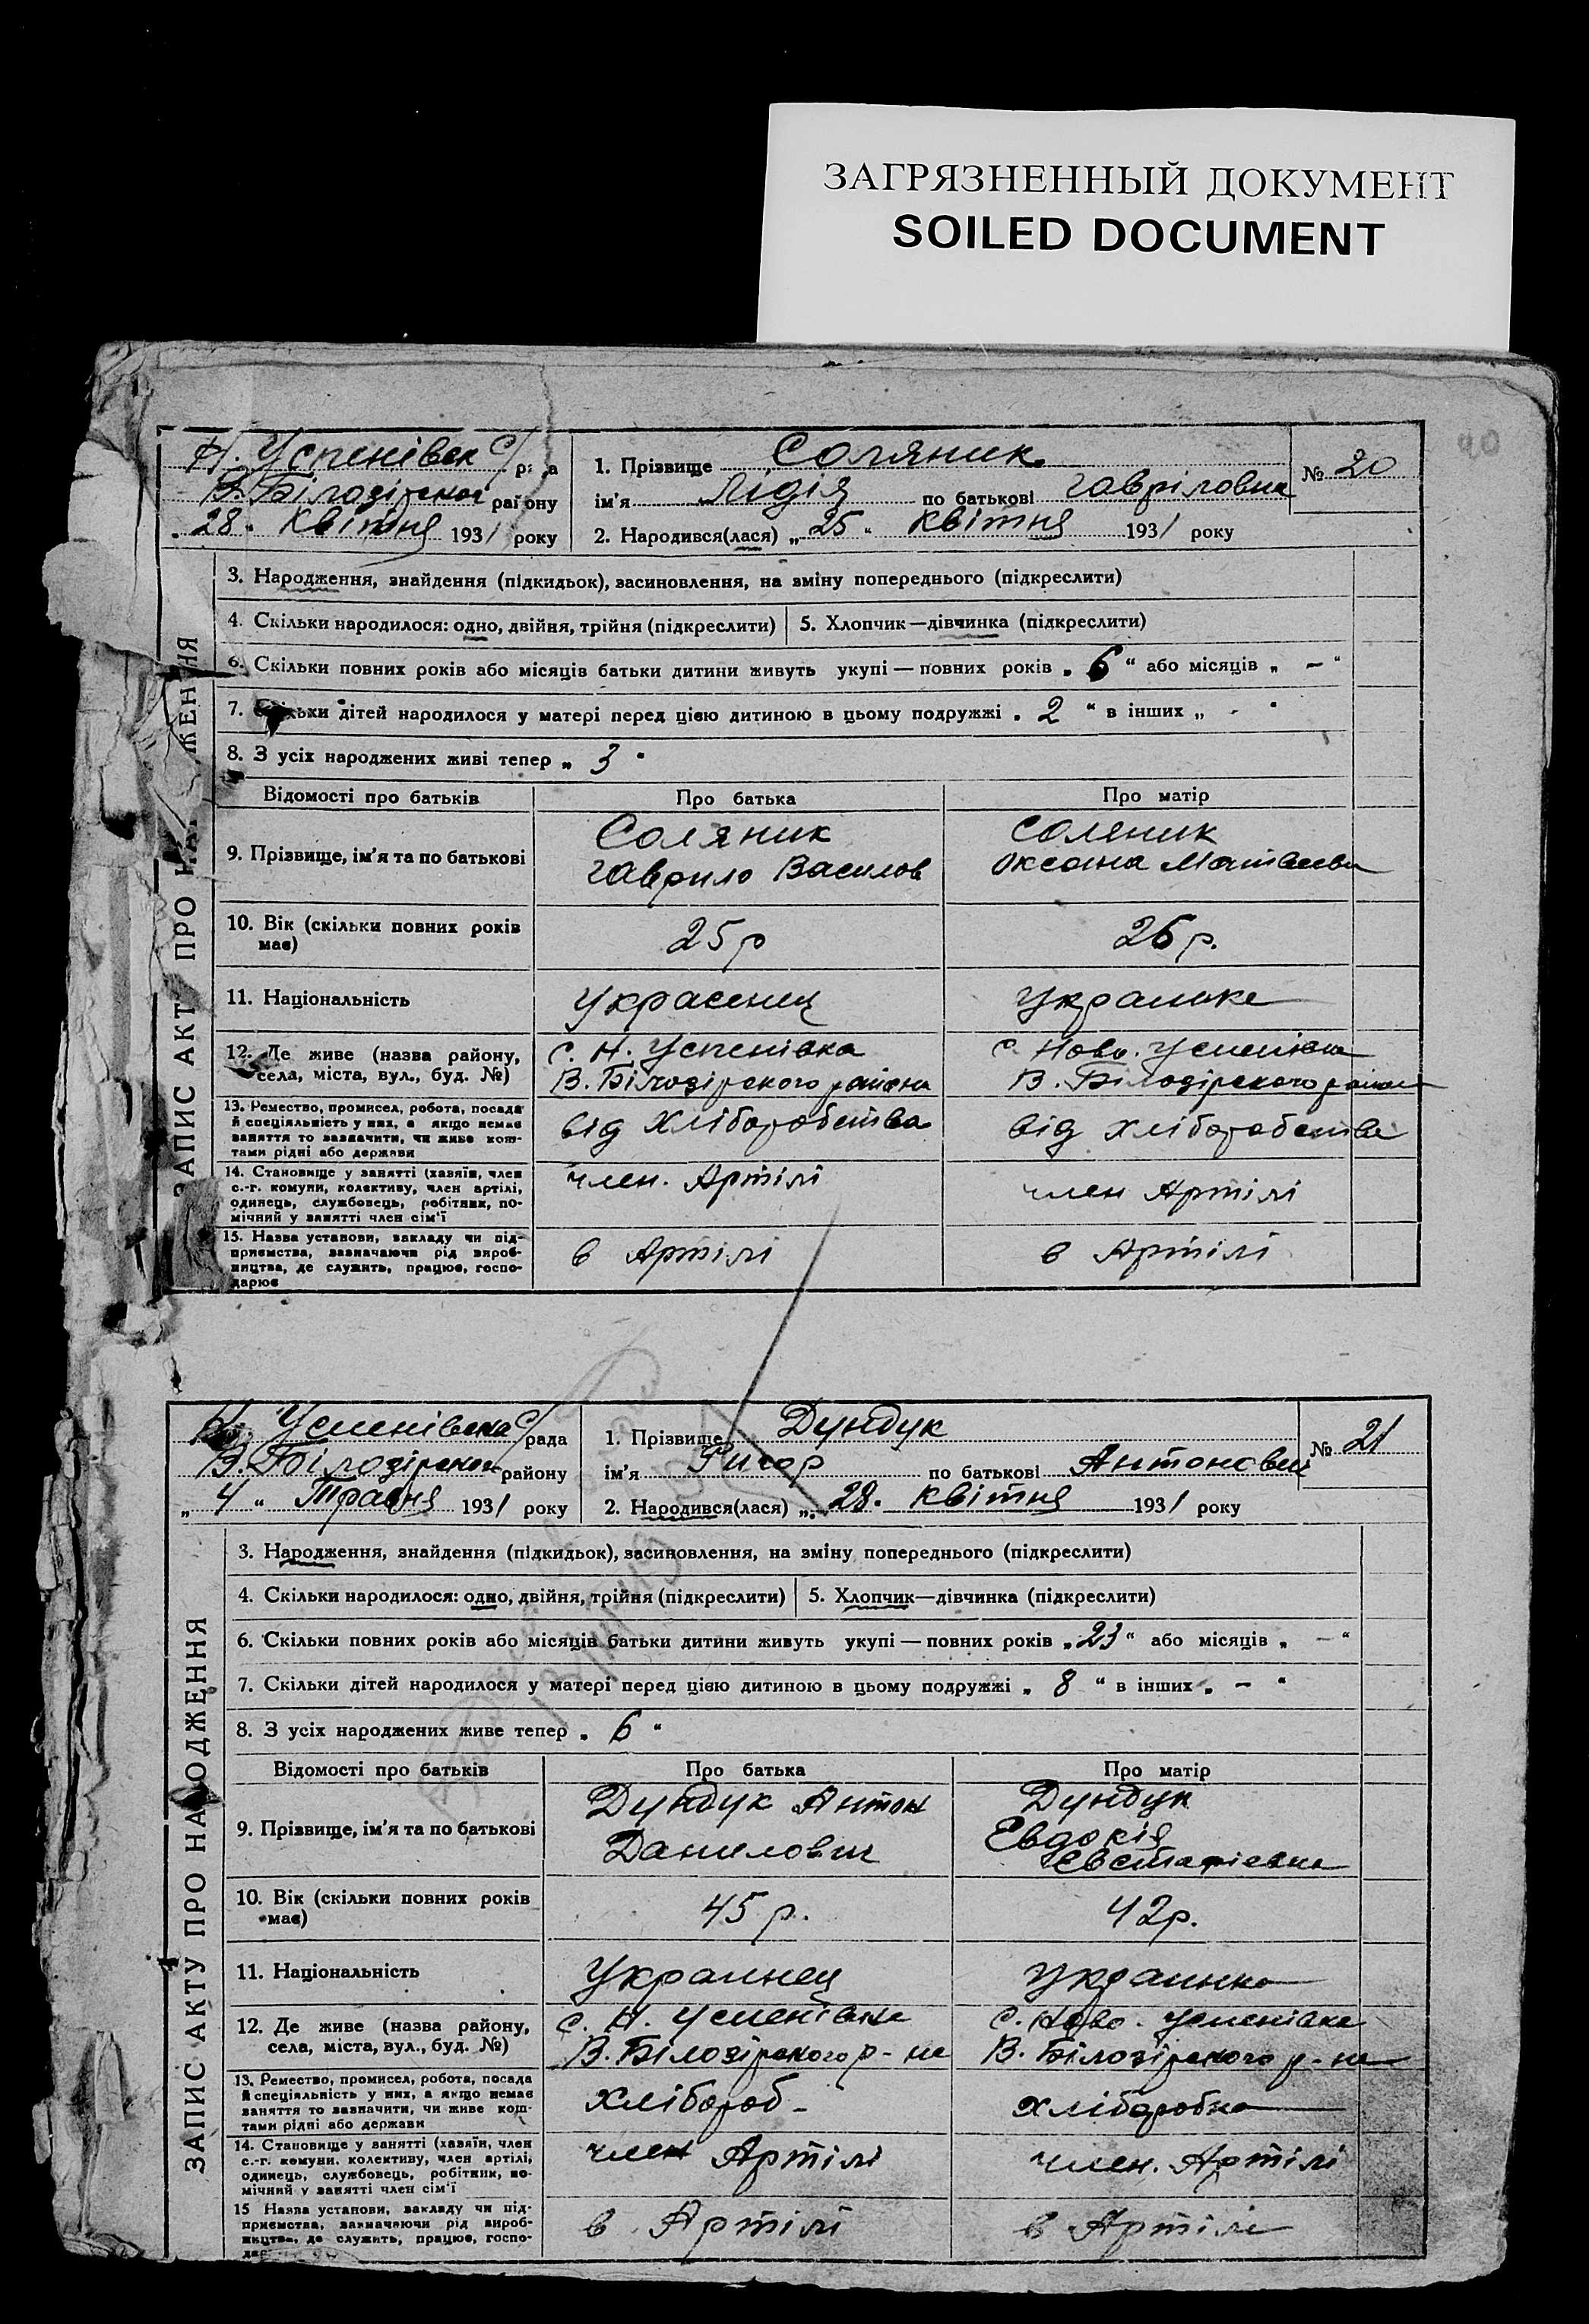 ЗАГРЯЗНЕННЫЙ ДОКУМЕНТ
SOILED DOCUMENT
40
Н. Успенівск с/рада
В. Білозірског району
28 " Квітня 1931 року
1. Прізвище Соляник
ім'я Лідія по батькові Гавріловна
№ 20
2. Народився(лася) „ 25 " Квітня 1931 року
ЗАПИС АКТУ ПРО
3. Народження, знайдення (підкидьок), засиновлення, на зміну попереднього (підкреслити)
4. Скільки народилося: одно, двійня, трійня (підкреслити) 5. Хлопчик—дівчинка (підкреслити)
6. Скільки повних років або місяців батьки дитини живуть укупі — повних років „ 6 " або місяців „ — "
7. Скільки дітей народилося у матері перед цією дитиною в цьому подружжі „ 2 " в інших „ - "
8. З усіх народжених живі тепер „ 3 "
Відомості про батьків Про батька Про матір
9. Прізвище, ім'я та по батькові
Соляник
Гаврило Василов
Соляник
Оксана Матвеевн
10. Вік (скільки повних років має)
25 р
26 р.
11. Національність
Украенец
Украинке
12. Де живе (назва району,
села, міста, вул., буд. №)
с. Н. Успенівка
В. Білозірского района
с. Ново. Успенівка
В. Білозірского района
13. Ремество, промисел, робота, посада
й спеціяльність у них, а якщо немає
заняття то зазначити, чи живе кош-
тами рідні або держави
від Хліборобства
від хліборобства
14. Становище у занятті (хазяїн, член
с.-г. комуни, колективу, член артілі,
одинець, службовець, робітник, по-
мічний у занятті член сім'ї
член. Артілі
член Артілі
15. Назва установи, закладу чи під-
приємства, зазначаючи рід вироб-
ництва, де служить, працює, госпо-
дарює
в Артілі
в Артілі
Н. Успенівска с/рада
В. Білозірског району
„ 4 " Травня 1931 року
1. Прізвище Дундук
ім'я Ригор по батькові Антонович
№ 21
2. Народився(лася) „ 28. Квітня 1931 року
ЗАПИС АКТУ ПРО НАРОДЖЕННЯ
3. Народження, знайдення (підкидьок), засиновлення, на зміну попереднього (підкреслити)
4. Скільки народилося: одно, двійня, трійня (підкреслити) 5. Хлопчик—дівчинка (підкреслити)
6. Скільки повних років або місяців батьки дитини живуть укупі — повних років „ 23 " або місяців „ — "
7. Скільки дітей народилося у матері перед цією дитиною в цьому подружжі „ 8 " в інших „ — "
8. З усіх народжених живе тепер „ 6 "
Відомості про батьків Про батька Про матір
9. Прізвище, ім'я та по батькові
Дундук Антон
Данилович
Дундук
Евдокія
Євстафіевна
10. Вік (скільки повних років
має)
45 р.
42р.
11. Національність
Украинец
Украинка
12. Де живе (назва району,
села, міста, вул., буд. №)
с. Н. Успенівка
В. Білозірского р-на
с. Ново. Успенівка
В. Білозірского р-на
13. Ремество, промисел, робота, посада
й спеціяльність у них, а якщо немає
заняття то зазначити, чи живе кош-
тами рідні або держави
хлібороб -
хліборобка
14. Становище у занятті (хазяїн, член
с.-г. комуни, колективу, член артілі,
одинець, службовець, робітник, по-
мічний у занятті член сім'ї
член Артілі
член. Артілі
15 Назва установи, закладу чи під-
приємства, зазначаючи рід вироб-
ництва, де служить, працює, госпо-
в Артілі
в Артілі